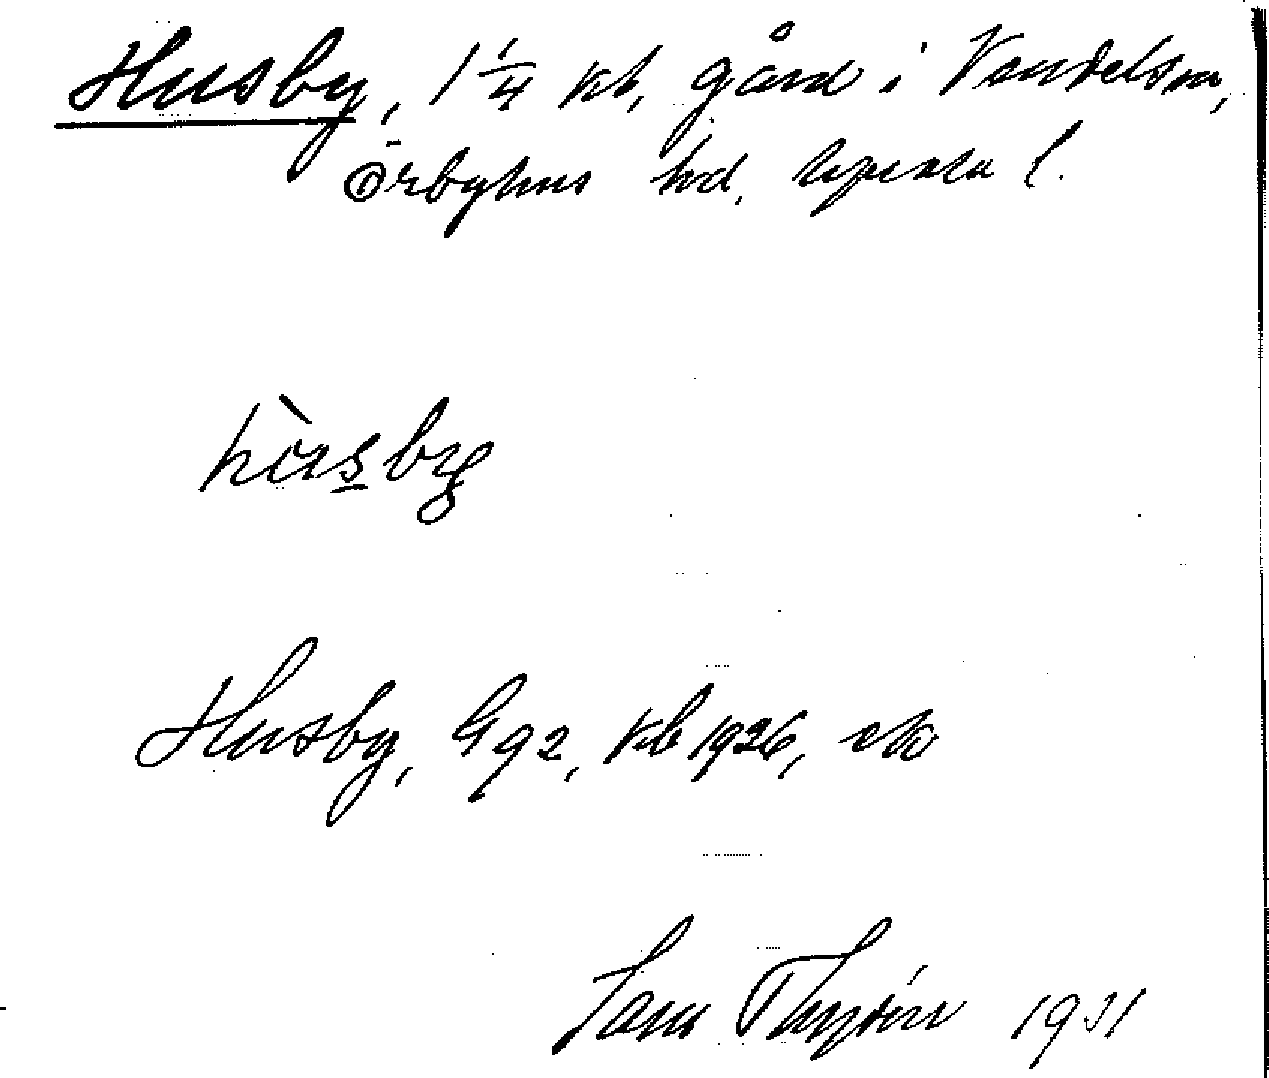 Husby, 1 1/4 kb, gård i Vendels sn,
Örbyhus hd. Uppsala l.
hùsby
Husby, G 92, kb 1926, ek
Sam Thysén 1931